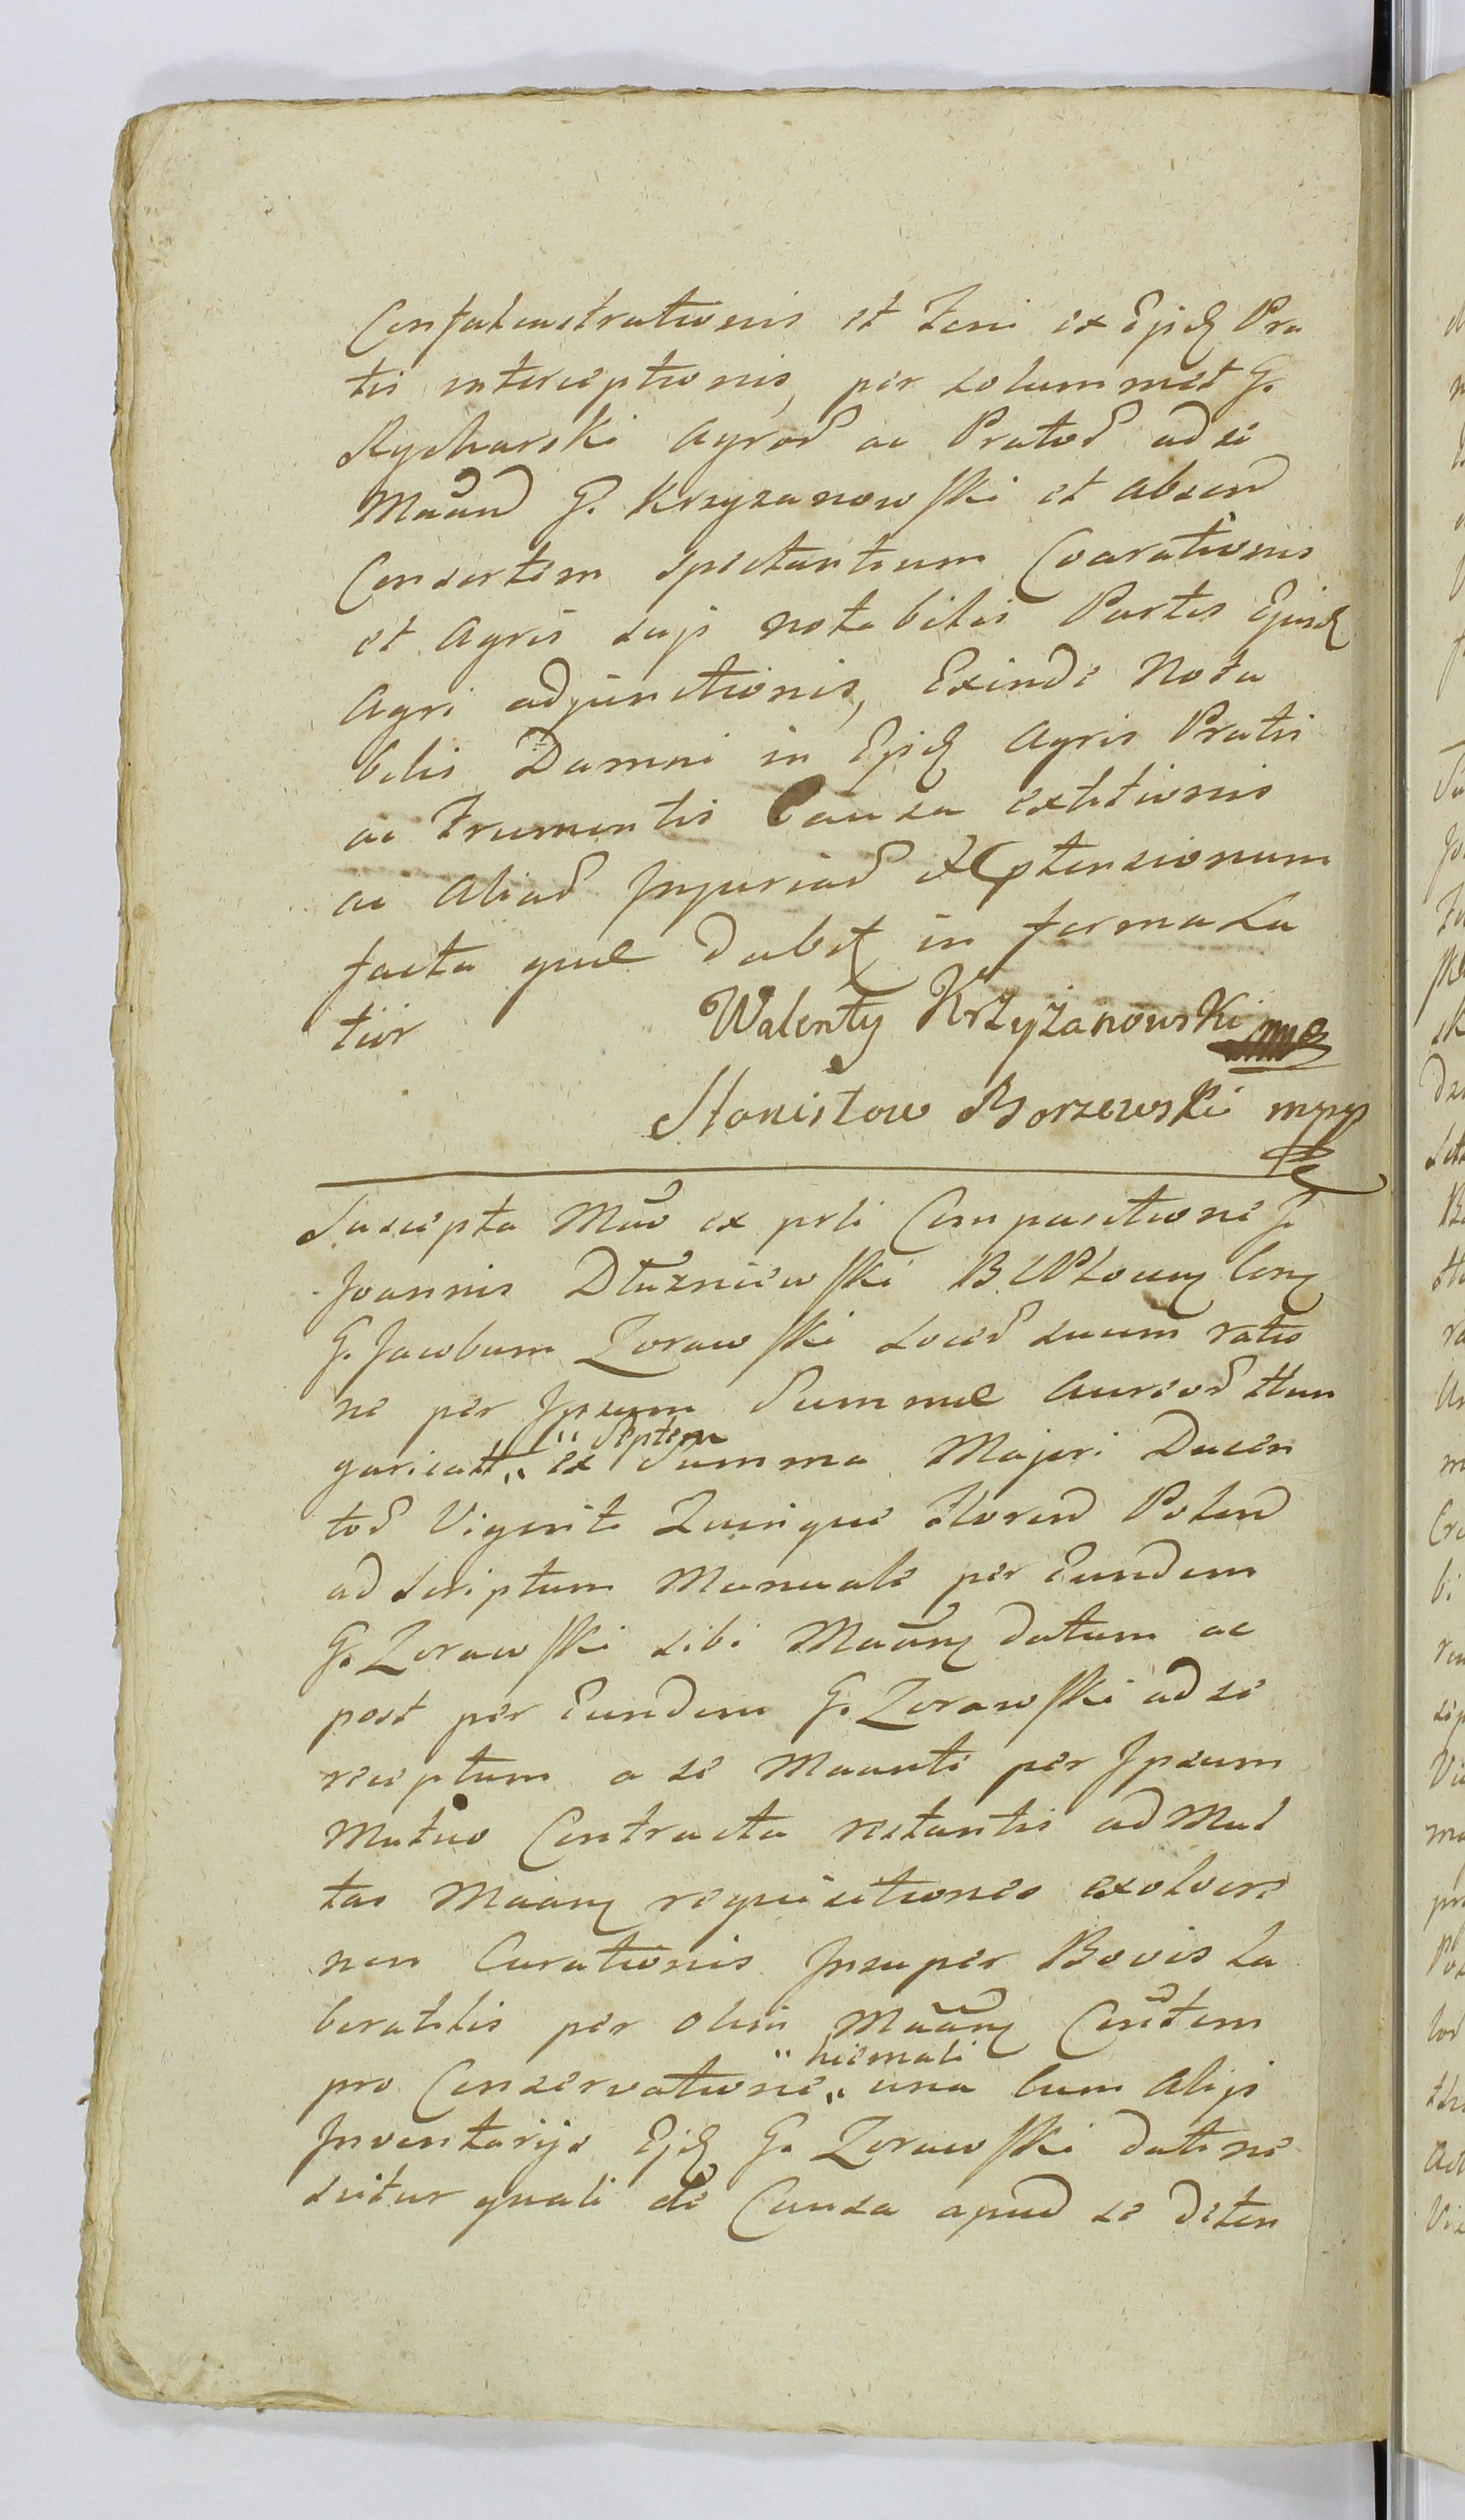 Confalcastrationis et Feni ex Ejsd Pra
tis interceptionis, per solummet G.
Rycharski Agrod ac Pratod ad se
Maand G. Krzyzanowski et absend
Consortem spectantium Coarationis
et Agris suis notabilis Partis Ejusd
Agri adjunctionis, Exinde Nota
bilis Damni in Ejsd Agris Pratis
ac Frumentis Causa extitionis
ac Aliad Injuriad et Ptensionum
facta quae dabit in forma La
tior
Walenty Krzyżanowski mp
Stanisław Borzewski mpp
Suscepta Mão ex psli Comparitione G.
Joannis Dłuzniewski B. Con
G. Jacobum Zorawski Soced suum ratio
ne per Ipsum Summae Aureod Hun
" Septem
garicall " ex Summa Majori Ducen
tod Viginti Quinque Florend Polend
ad Scriptum Manuale per Eundem
G. Zorawski sibi Maan datum ac
post per Eundem G. Zorawski ad se
receptum a se Maante per Ipsum
Mutuo Contracta restantis ad Mul
tas Maan requisitiones exolvere
non Curationis Insuper Bovis La
boratilis per olim Maan Contem
" hiemali
pro Conservatione " una cum Alijs
Inventarijs Ejd G. Zorawski dati ne
scitur quali de Causa apud se deten